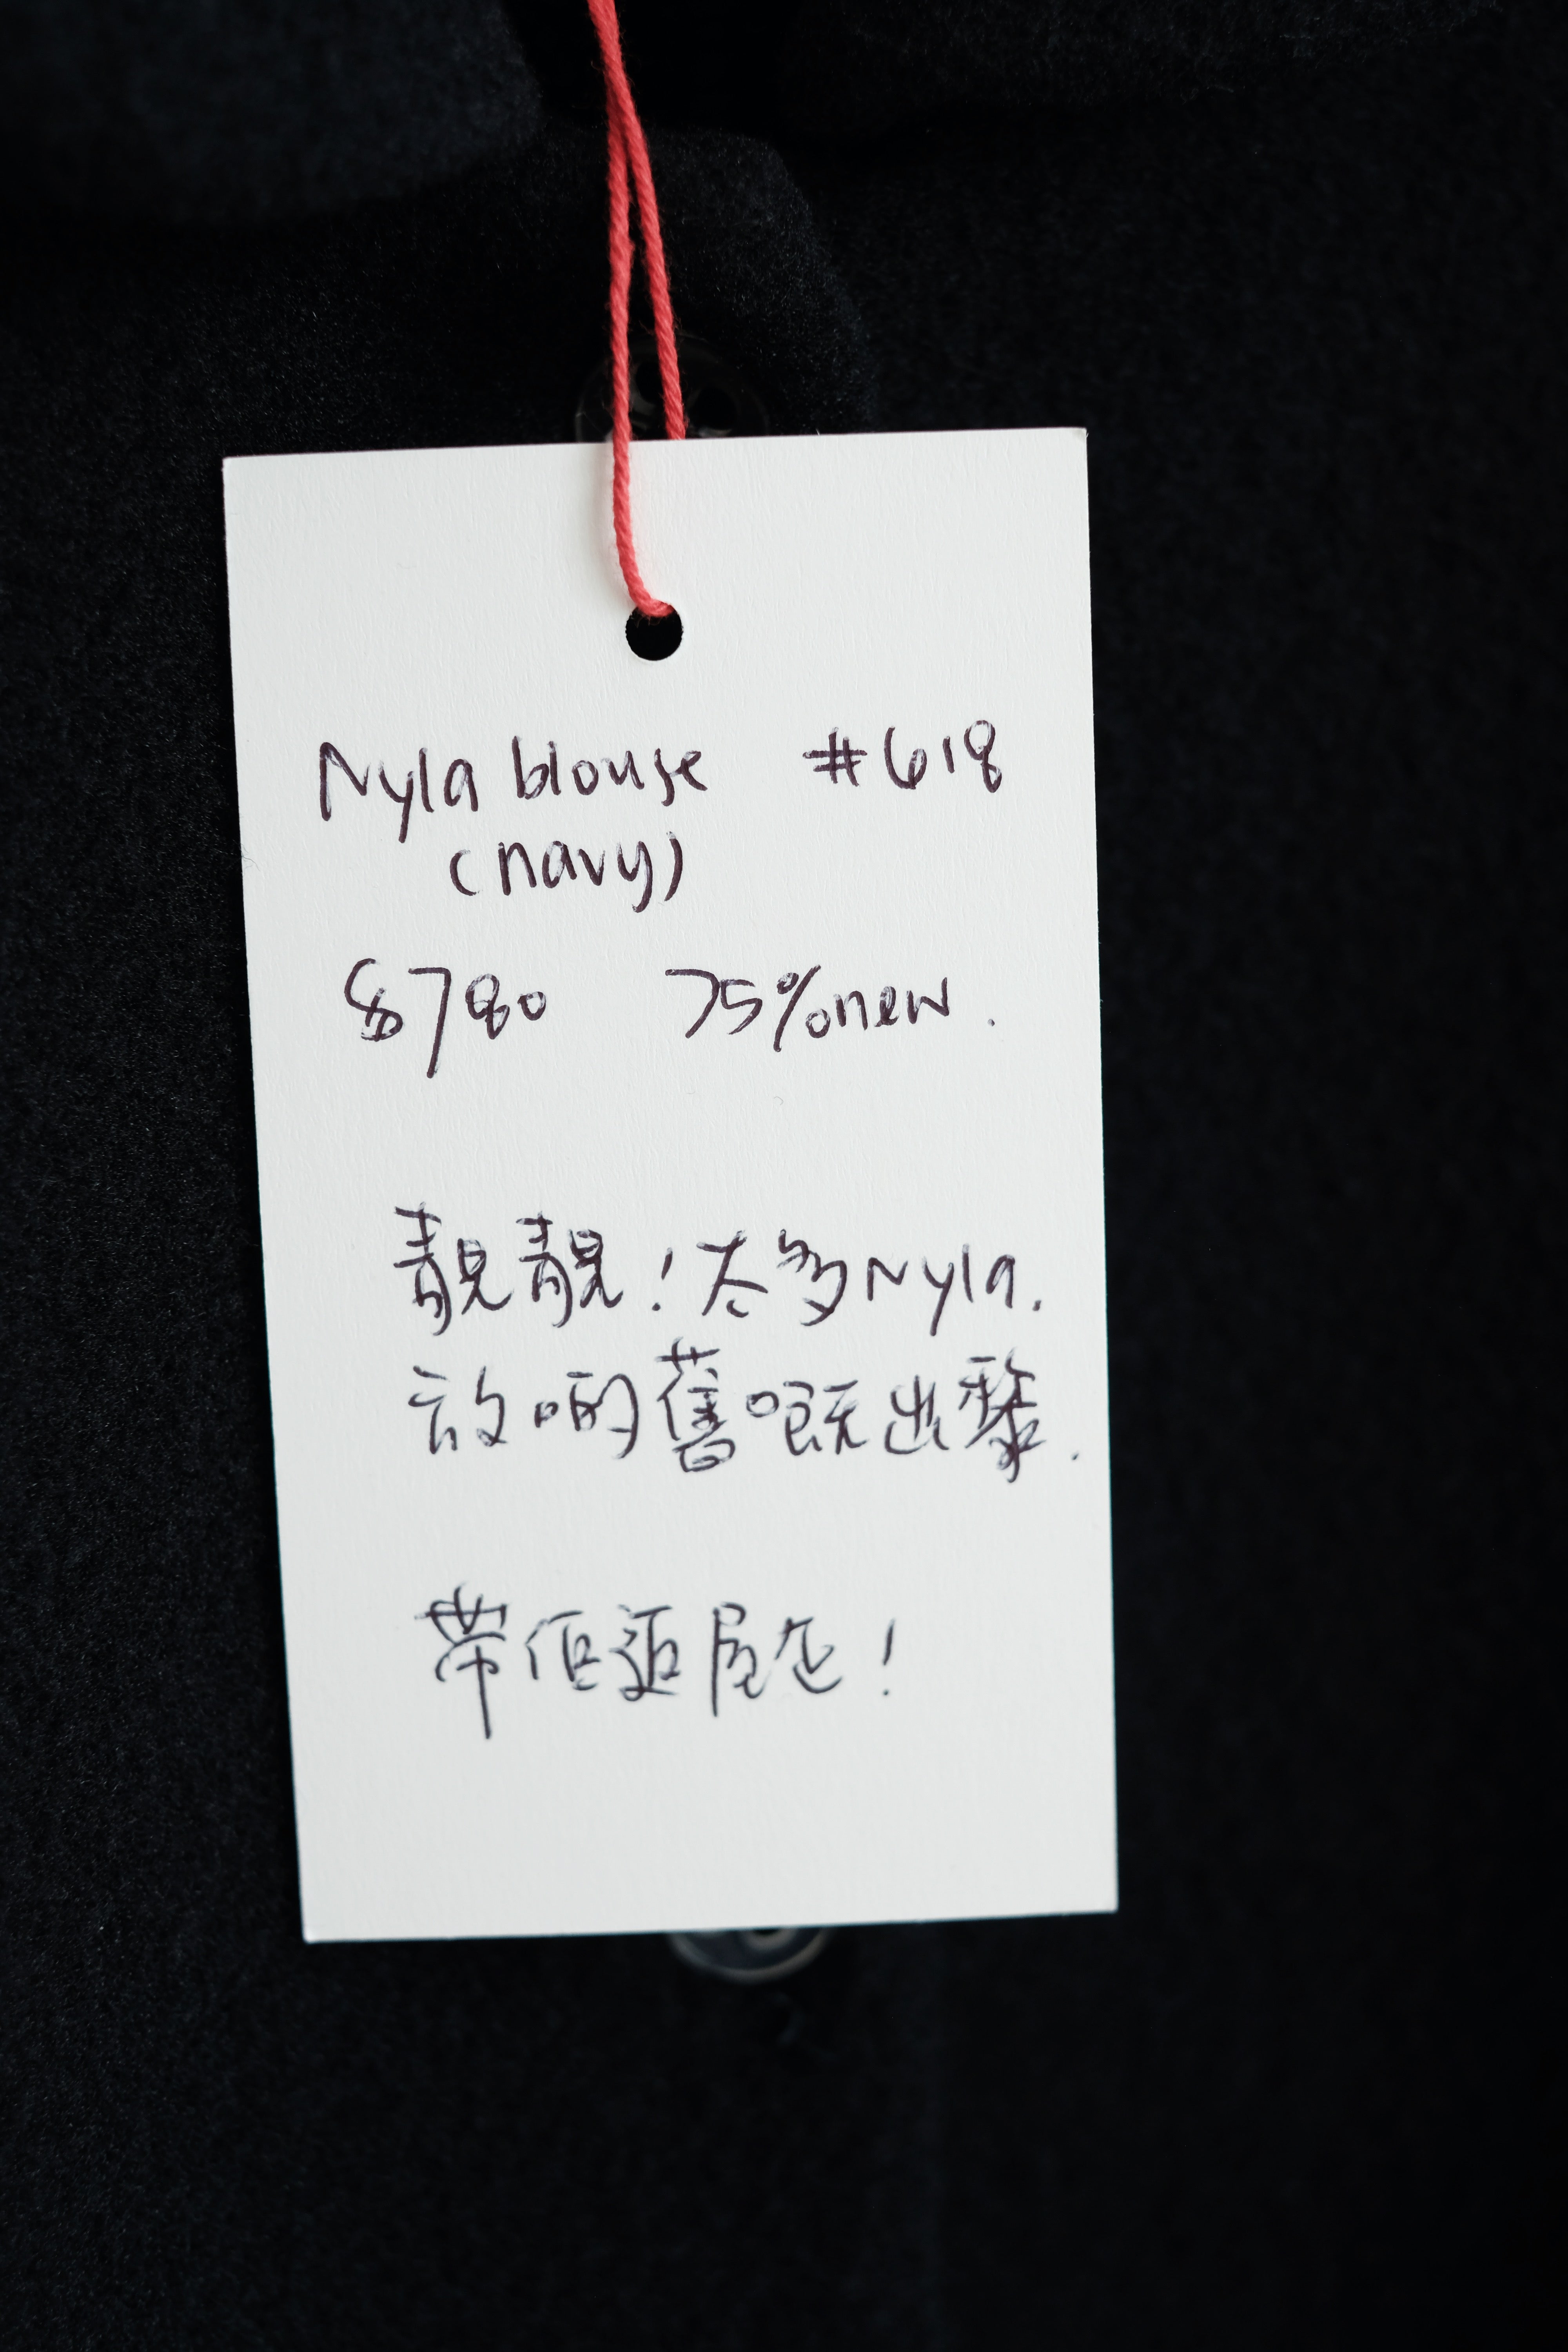 Nyla blouse #618
(navy)
$780 75% new.
靚靚！太多Nyla.
放啲舊嘅出黎.
帶佢返屋企！